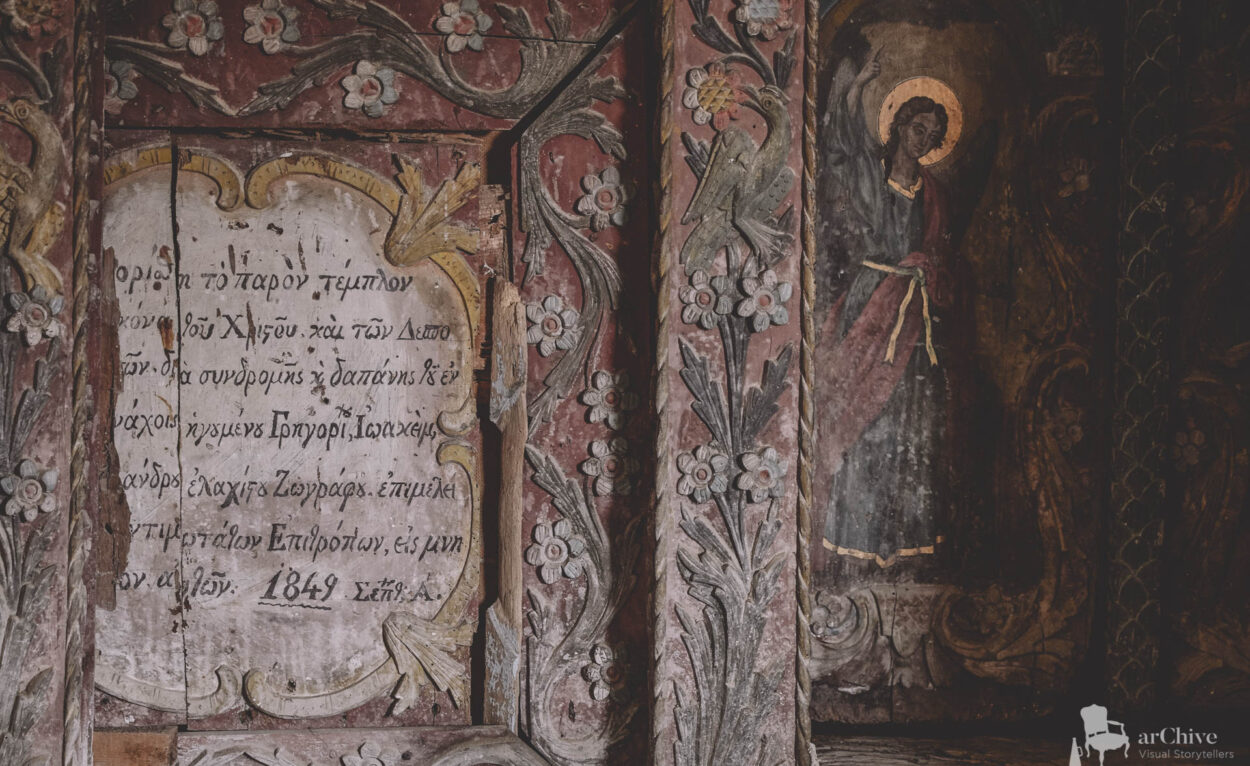 οριση τὸ παρὸν τέμπλον
κόνα τοῦ Χριςοῦ. καὶ τῶν Δεσπο
τῶν. διὰ συνδρομῆς ϗ δαπάνης τȣ̃ ἐν
νάχοις ἡγȣμένȣ Γρηγορίȣ, Ἰωακεὶμ,
άνδρȣ ἐλαχίςȣ Ζωγράφȣ. ἐπιμελεί
ντιμωτάτων Ἐπιτρόπων, εἰς μνη
ον. αὐτῶν. 1849 Σεπτ: Α.
arChive
Visual Storytellers